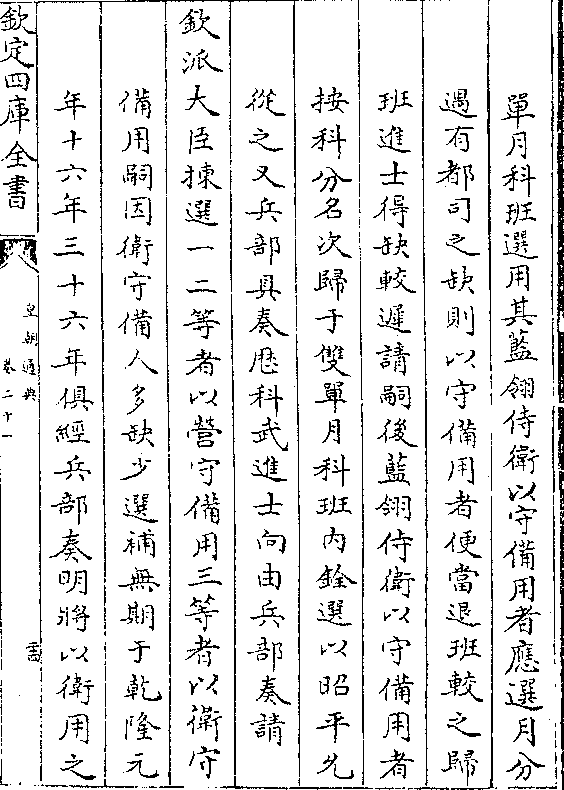 單月科班選用其藍翎侍衛以守備用者應選月分
遇有都司之缺則以守備用者便當退班較之歸
班進士得缺較遲請嗣後藍翎侍衛以守備用者
按科分名次歸于雙單月科班内銓選以昭平允
從之又兵部具奏歴科武進士向由兵部奏請
欽派大臣揀選一二等者以營守備用三等者以衛守
備用嗣因衛守備人多缺少選補無期于乾隆元
年十六年三十六年俱經兵部奏明將以衛用之
欽定四庫全書
皇朝通典
卷二十一